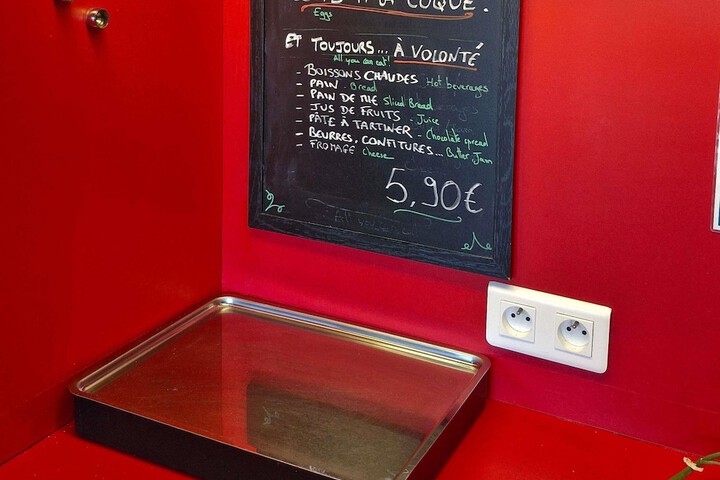 A LA COQUE.
Eggs
ET TOUJOURS... À VOLONTÉ
All you can eat!
- BOISSONS CHAUDES Hot beverages
- PAIN - Bread
- PAIN DE MIE Sliced Bread
- JUS DE FRUITS - Juice
- PÂTE À TARTINER - Chocolate spread
- BEURRES, CONFITURES... Butter, Jam
- FROMAGE Cheese
5,90€